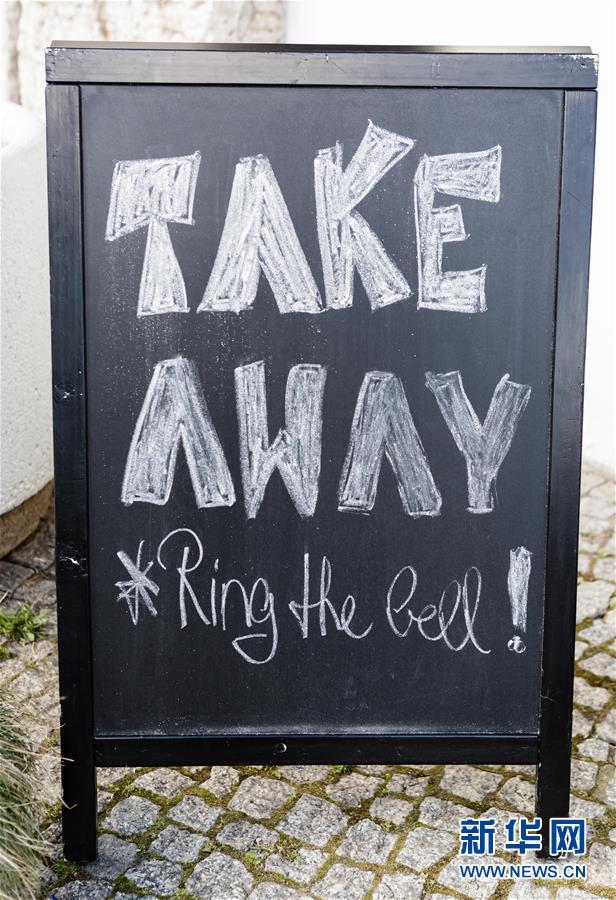 TAKE
AWAY
*Ring the bell!
新华网
WWW.NEWS.CN